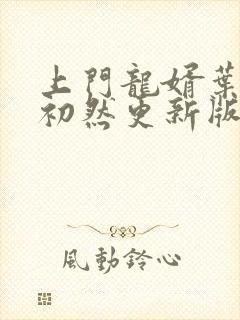 上門龍婿葉
初然更新版
風動鈴心